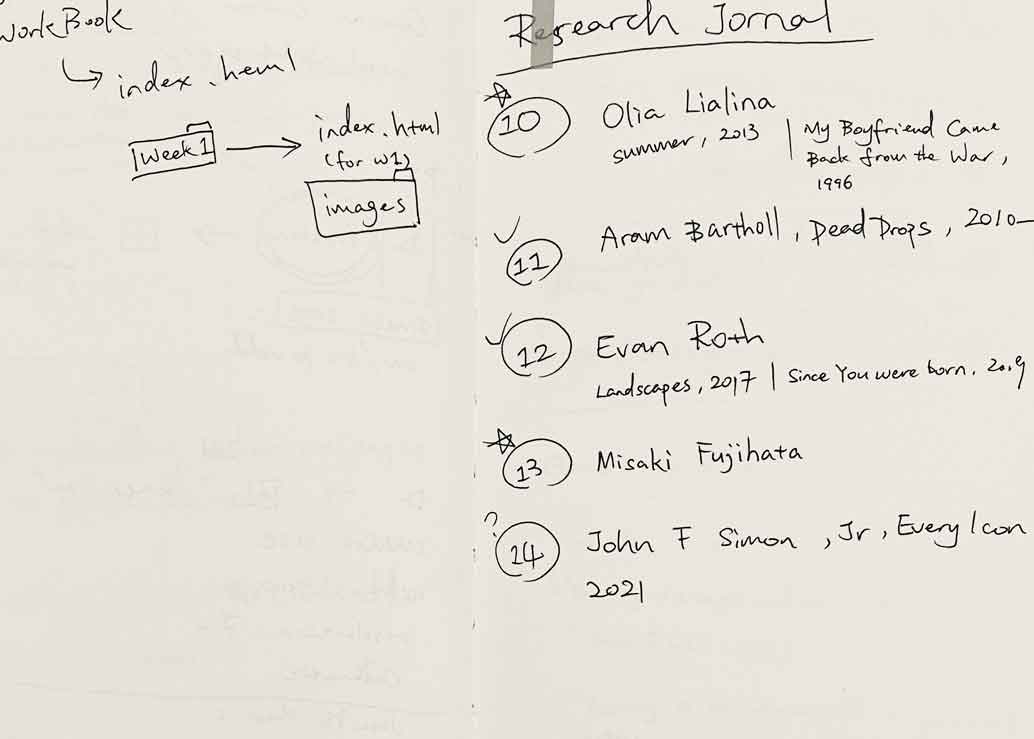 WorkBook
index.heml
Week 1
index.html
(for w1)
images
Research Jornal
10 Olia Lialina
summer, 2013 | My Boyfriend Came
Back from the War,
1996
11 Aram Bartholl, Dead Drops, 2010—
12 Evan Roth
Landscapes, 2017 | Since You were born, 2019
13 Misaki Fujihata
? 14 John F Simon, Jr, Every Icon
2021